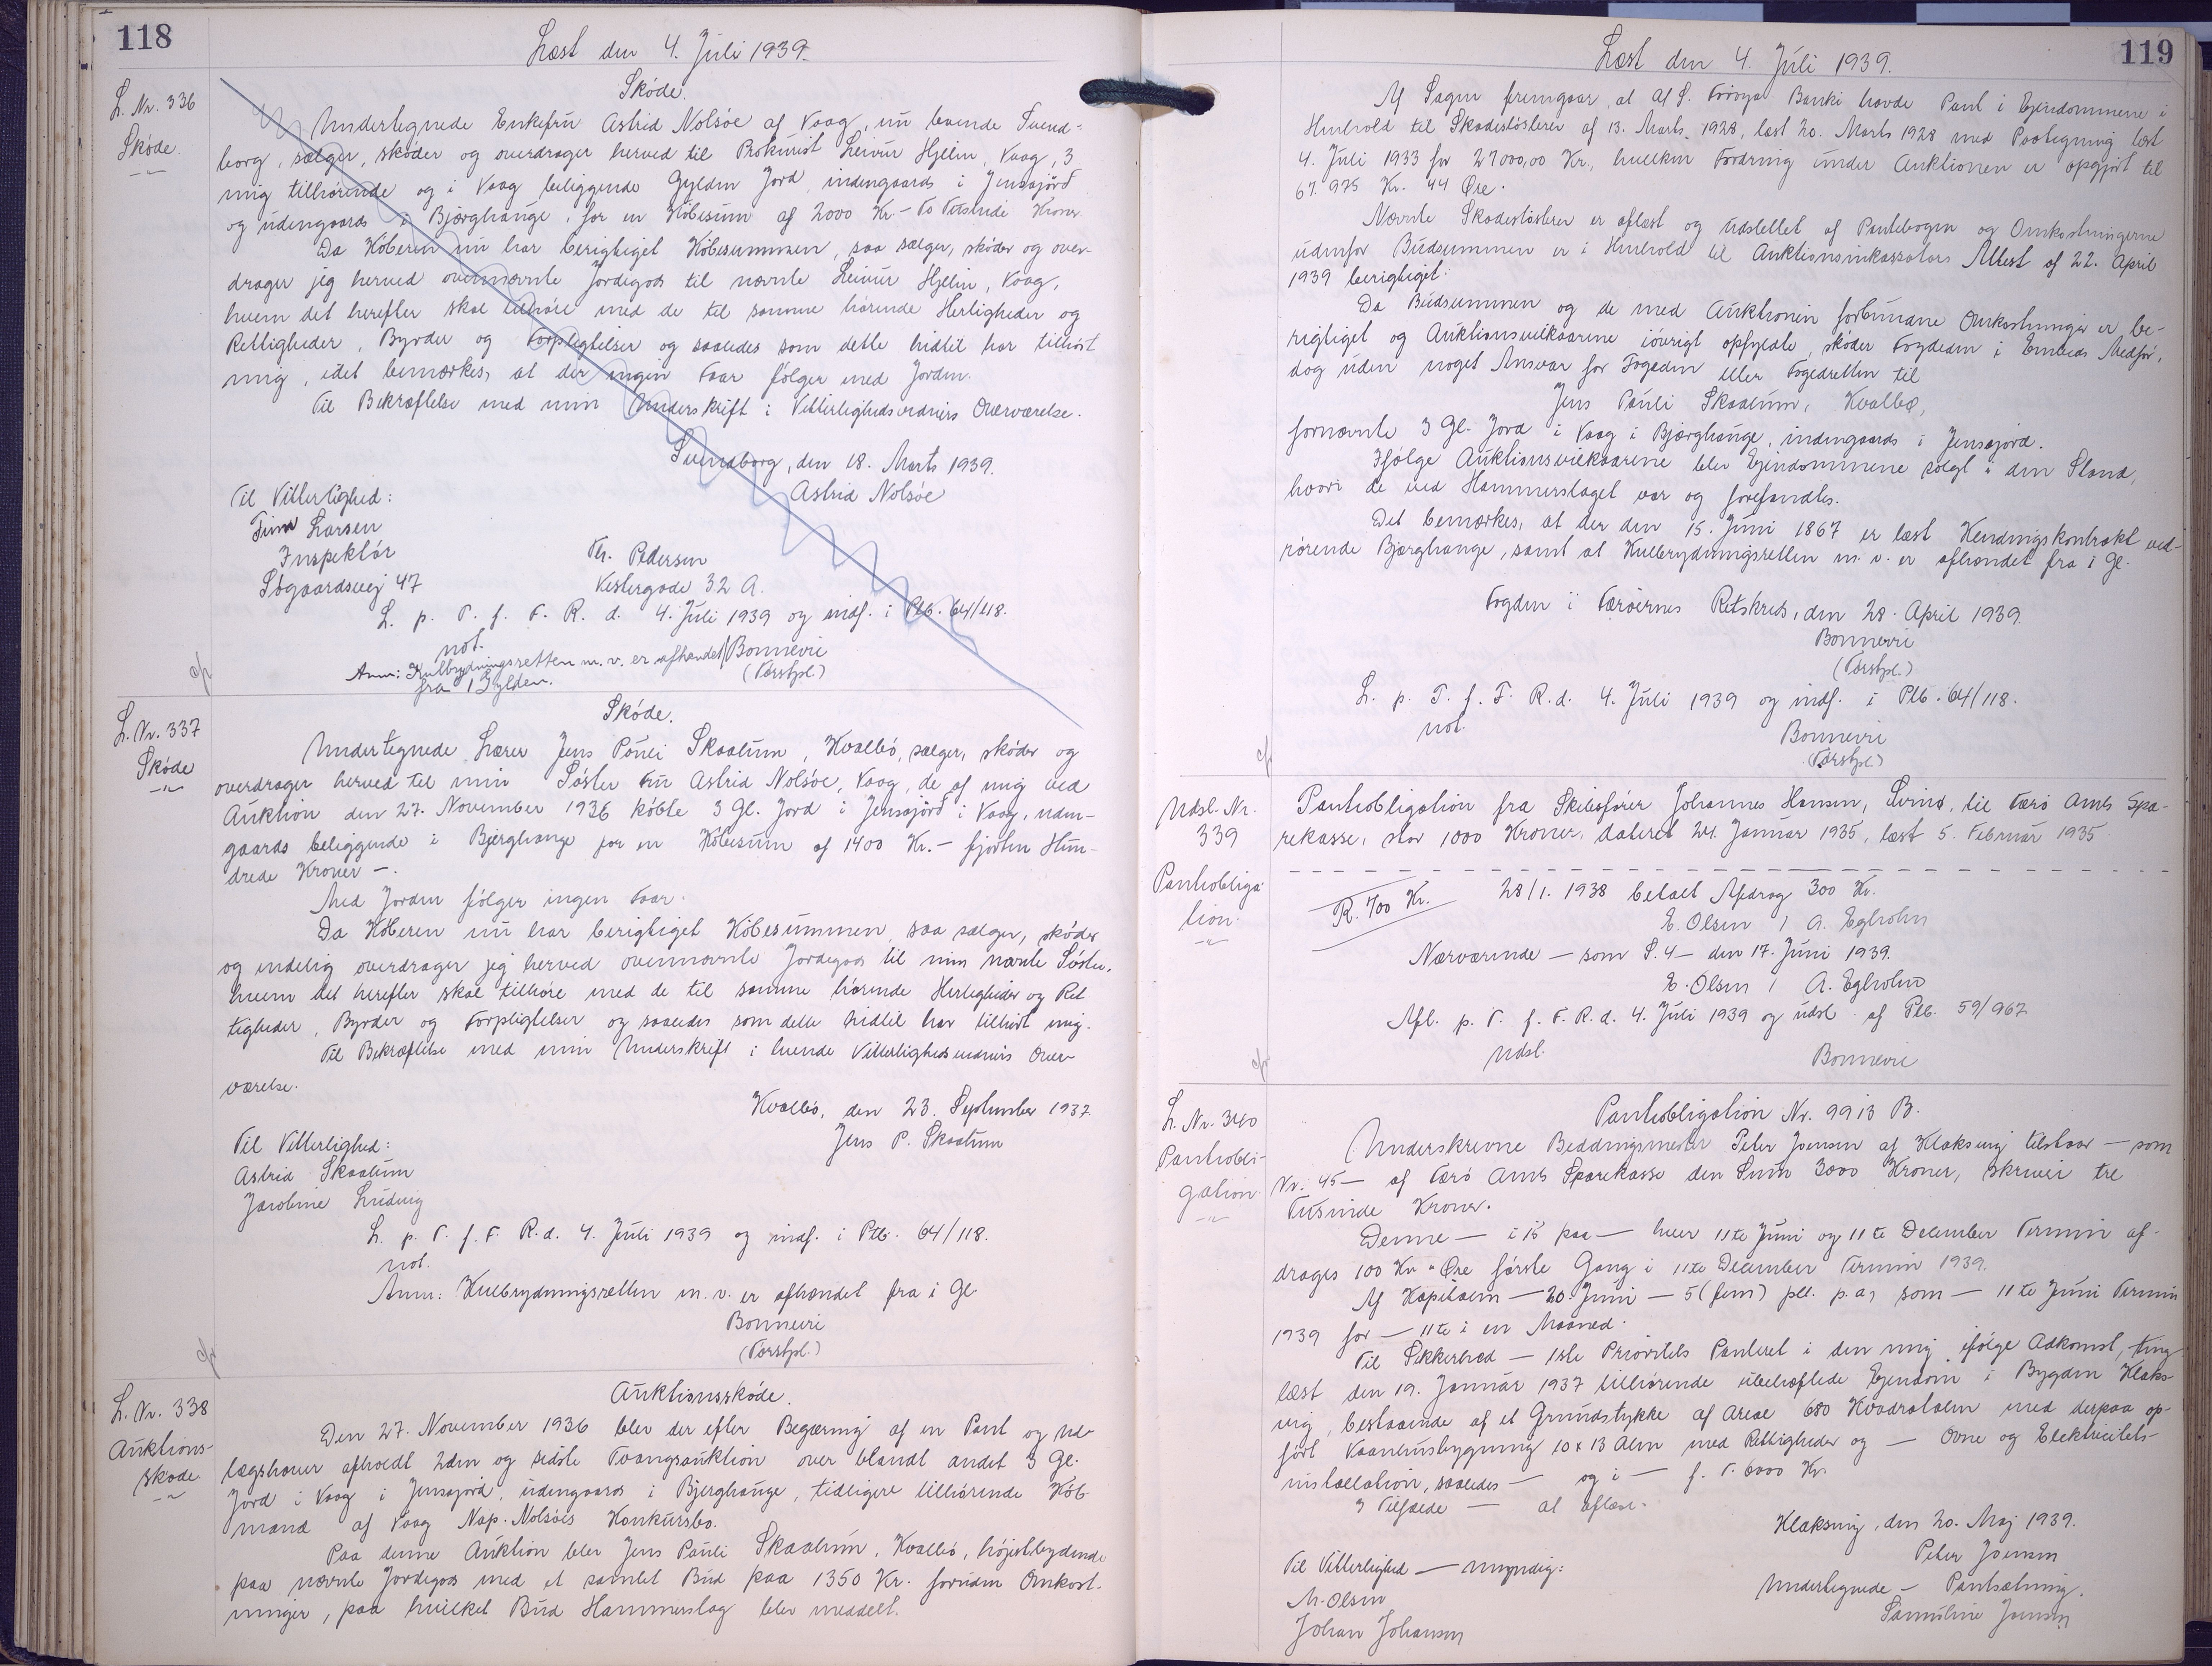 118
Læst den 4. Juli 1939.
L. Nr. 336
Skøde.
Skøde.
Undertegnede Enkefru Astrid Nolsöe af Vaag, nu boende Svend-
borg, sælger, skøder og overdrager herved til Prokurist Leivur Hjelm, Vaag, 3
mig tilhørende og i Vaag beliggende Gylden Jord, indengaards i Jensajörd
og udengaards i Bjærghauge, for en Købesum af 2000 Kr. - To Tusinde Kroner.
Da Køberen nu har berigtiget Købesummen, saa sælger, skøder og over-
drager jeg herved ovennævnte Jordegods til nævnte Leivur Hjelm, Vaag,
hvem det herefter skal tilhøre med de til samme hørende Herligheder og
Rettigheder, Byrder og Forpligtelser og saaledes som dette hidtil har tilhørt
mig, idet bemærkes, at der ingen Faar følger med Jorden.
Til Bekræftelse med min Underskrift i Vitterlighedsvidners Overværelse.
Svendborg, den 18. Marts 1939.
Astrid Nolsöe
Til Vitterlighed:
Finn Larsen
Inspektør
Søgaardsvej 47
Th. Pedersen
Vestergade 32 A.
L. p. T. f. F. R. d. 4. Juli 1939 og indf. i Ptb. 64/118.
not.
Anm: Kulbrydningsretten m. v. er afhændet
fra 1 Gylden.
Bonnevie
(Forstpl.)
L. Nr. 337
Skøde
Skøde.
Undertegnede Lærer Jens Pauli Skaalum, Kvalbö, sælger, skøder og
overdrager herved til min Søster Fru Astrid Nolsöe, Vaag, de af mig ved
Auktion den 27. November 1936 købte 3 Gl. Jord i Jensajörd i Vaag, uden-
gaards beliggende i Bjærghauge for en Købesum af 1400 Kr. - fjorten Hun-
drede Kroner -.
Med Jorden følger ingen Faar.
Da Køberen nu har berigtiget Købesummen, saa sælger, skøder
og endelig overdrager jeg herved ovennævnte Jordegods til min nævnte Søster,
hvem det herefter skal tilhøre med de til samme hørende Herligheder og Ret
tigheder, Byrder og Forpligtelser og saaledes som dette hidtil har tilhørt mig.
Til Bekræftelse med min Underskrift i hvende Vitterlighedsvidners Over-
værelse.
Kvalbö, den 23. September 1937.
Jens P. Skaalum
Til Vitterlighed:
Astrid Skaalum
Jacobine Ludvig
L. p. T. f. F. R. d. 4. Juli 1939 og indf. i Ptb. 64/118.
not.
Anm: Kulbrydningsretten m. v. er afhændet fra 1 Gl.
Bonnevie
(Forstpl.)
L. Nr. 338
Auktions-
skøde
Auktionsskøde.
Den 27. November 1936 blev der efter Begæring af en Pant og Ud-
lægshaver afholdt 2den og sidste Tvangsauktion over blandt andet 3 Gl.
Jord i Vaag i Jensajord, udengaards i Bjerghauge, tidligere tilhørende Køb-
mand af Vaag Nap. Nolsöes Konkursbo.
Paa denne Auktion blev Jens Pauli Skaalum, Kvalbö, højestbydende
paa nævnte Jordegods med et samlet Bud paa 1350 Kr. foruden Omkost-
ninger, paa hvilket Bud Hammerslag blev meddelt.
119
Læst den 4. Juli 1939.
Af Sagen fremgaar, at A/S. Föroya Banki havde Pant i Ejendommene i
Henhold til Skadesløsbrev af 13. Marts 1928, læst 20. Marts 1928 med Paategning læst
4. Juli 1933 for 27000,00 Kr., hvilken Fordring under Auktionen er opgjort til
67.975 Kr. 44 Øre.
Nævnte Skadesløsbrev er aflæst og udslettet af Pantebogen og Omkostningerne
udenfor Budsummen er i Henhold til Auktionsinkassators Attest af 22. April
1939 berigtiget.
Da Budsummen og de med Auktionen forbundne Omkostninger er be-
rigtiget og Auktionsvilkaarene iøvrigt opfyldte, skøder Fogeden i Embeds Medfør,
dog uden noget Ansvar for Fogeden eller Fogedretten til
Jens Pauli Skaalum, Kvalbø,
fornævnte 3 Gl. Jord i Vaag i Bjærghauge, indengaards i Jensajord.
Ifølge Auktionsvilkaarene blev Ejendommene solgt i den Stand,
hvori de ved Hammerslaget var og forefandtes.
Det bemærkes, at der den 15. Juni 1867 er læst Kendingskontrakt ved-
rørende Bjærghauge, samt at Kulbrydningsretten m. v. er afhændet fra 1 Gl.
Fogden i Færöernes Retskreds, den 28. April 1939.
Bonnevie
(Forstpl.)
L. p. T. f. F. R. d. 4. Juli 1939 og indf. i Ptb. 64/118.
not.
Bonnevie
(Forstpl.)
Udsl. Nr.
339
Pantobliga
tion.
Pantobligation fra Skibsfører Johannes Hansen, Svinö, til Færö Amts Spa-
rekasse, stor 1000 Kroner, dateret 24. Januar 1935, læst 5. Februar 1935.
R. 700 Kr.
28/1. 1938 betalt Afdrag 300 Kr.
E. Olsen / A. Egholm
Nærværende — som S. 4 — den 17. Juni 1939.
E. Olsen / A. Egholm
Afl. p. T. f. F. R. d. 4. Juli 1939 og udsl. af Ptb. 59/967
Udsl.
Bonnevie
L. Nr. 340
Pantobli-
gation.
Pantobligation Nr. 9913 B.
Underskrevne Beddingsmester Peter Joensen af Klaksvig tilstaar — som
Nr. 45 — af Færö Amts Sparekasse den Sum 3000 Kroner, skriver tre
Tusinde Kroner.
Denne — i 15 paa — hver 11te Juni og 11te December Termin af-
drages 100 Kr. " Øre første Gang i 11te December Termin 1939.
Af Kapitalen — 20. Juni — 5 (fem) pCt. p. a, som — 11te Juni Termin
1939 for — 11te i en Maaned.
Til Sikkerhed — 1ste Prioritets Panteret i den mig ifølge Adkomst, ting
læst den 19. Januar 1937 tilhørende ubehæftede Ejendom i Bygden Klaks-
vig, bestaaende af et Grundstykke af Areal 680 Kvadratalen med derpaa op-
ført Vaaningsbygning 10 x 13 Alen med Rettigheder og — Ovne og Elektricitets-
installation, saaledes — og i — f. T. 6000 Kr.
I Tilfælde — at aflæse.
Klaksvig, den 20. Maj 1939.
Peter Joensen
Til Vitterlighed — myndig:
M. Olsen
Johan Johansen
Undertegnede — Pantsætning.
Samuline Joensen